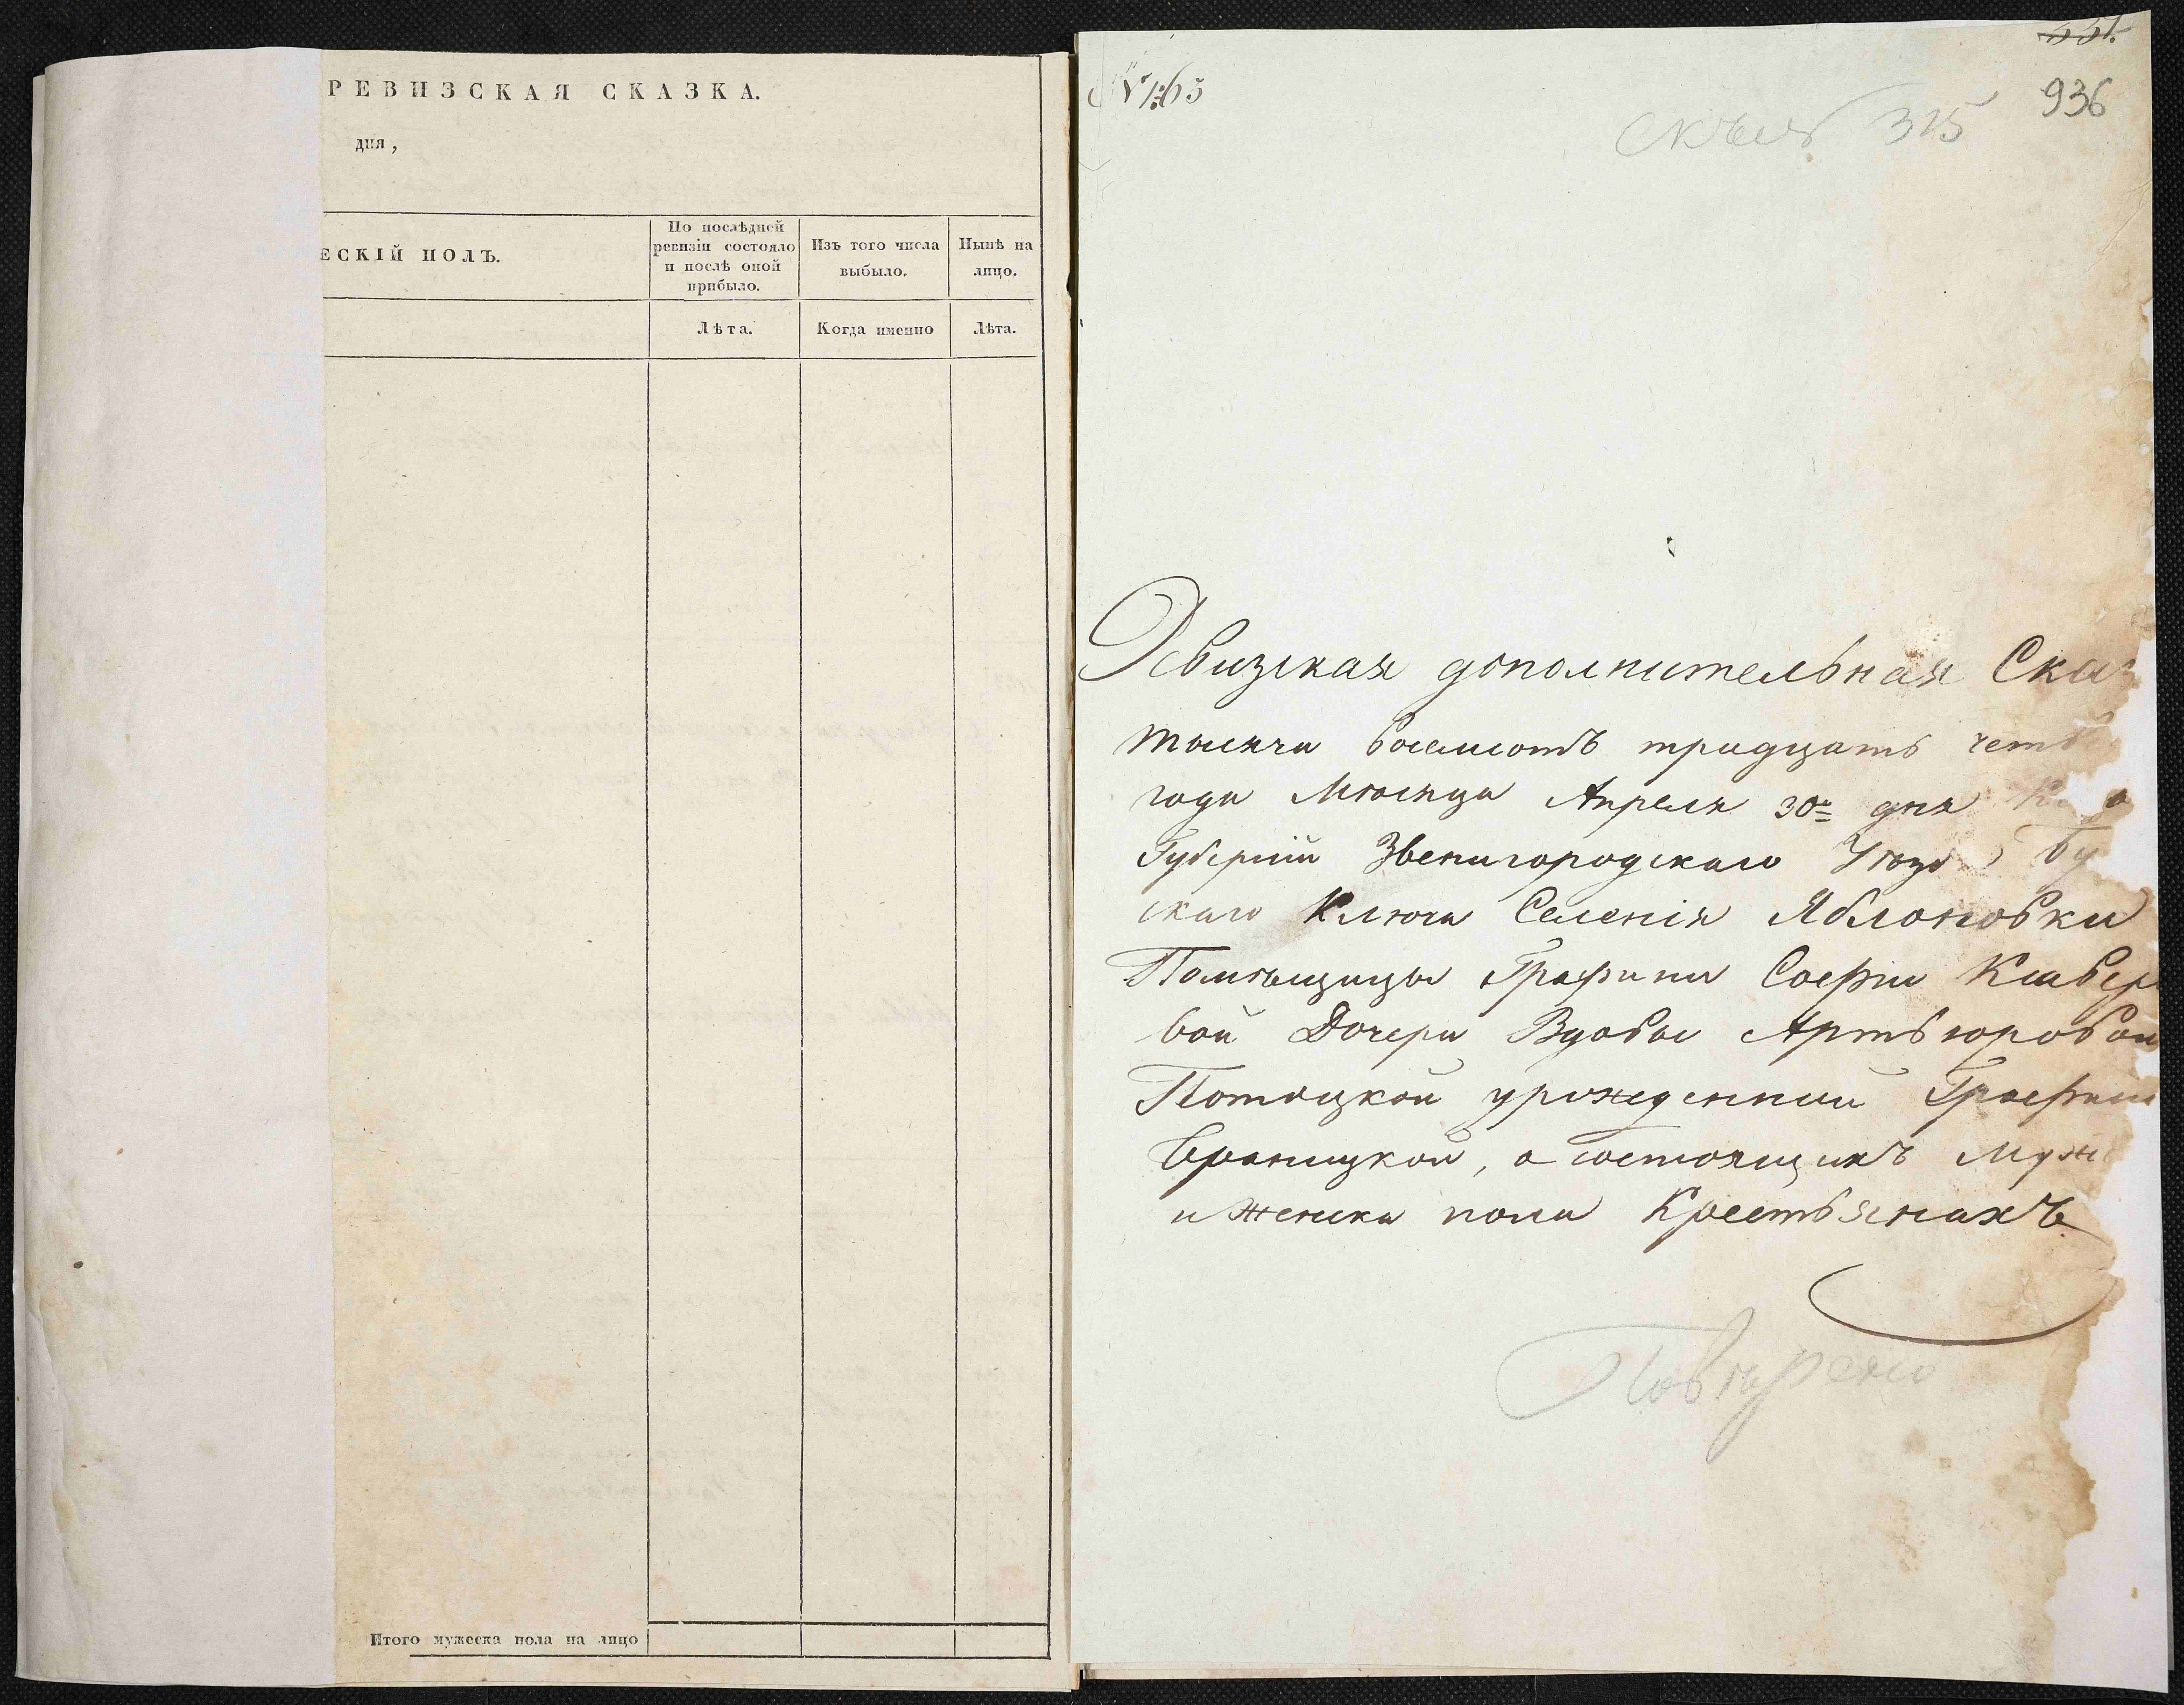 РЕВИЗСКАЯ СКАЗКА.
дня,
ЕСКІЙ ПОЛЪ.
По послѣдней
ревизіи состояло
и послѣ оной
прибыло.
Изъ того числа
выбыло.
Нынѣ на
лицо.
Лѣта.
Когда именно
Лѣта.
Итого мужеска пола на лицо
№ 165
551.
936
315
Ревизская дополнительная Сказ
тысяча восемсотъ тридцать четв
года Мѣсяца Апреля 30го дня
Губерніи Звенигородскаго Уѣзд Бу
скаго Ключа Селенія Яблоновки
Помѣщицы Графини Софіи Ксавер
вой Дочери Вдовы Артвюровой
Потоцкой урожденной Графини
Браницкой, о состоящихъ муж
и женска пола Крестьянахъ
Повѣрено